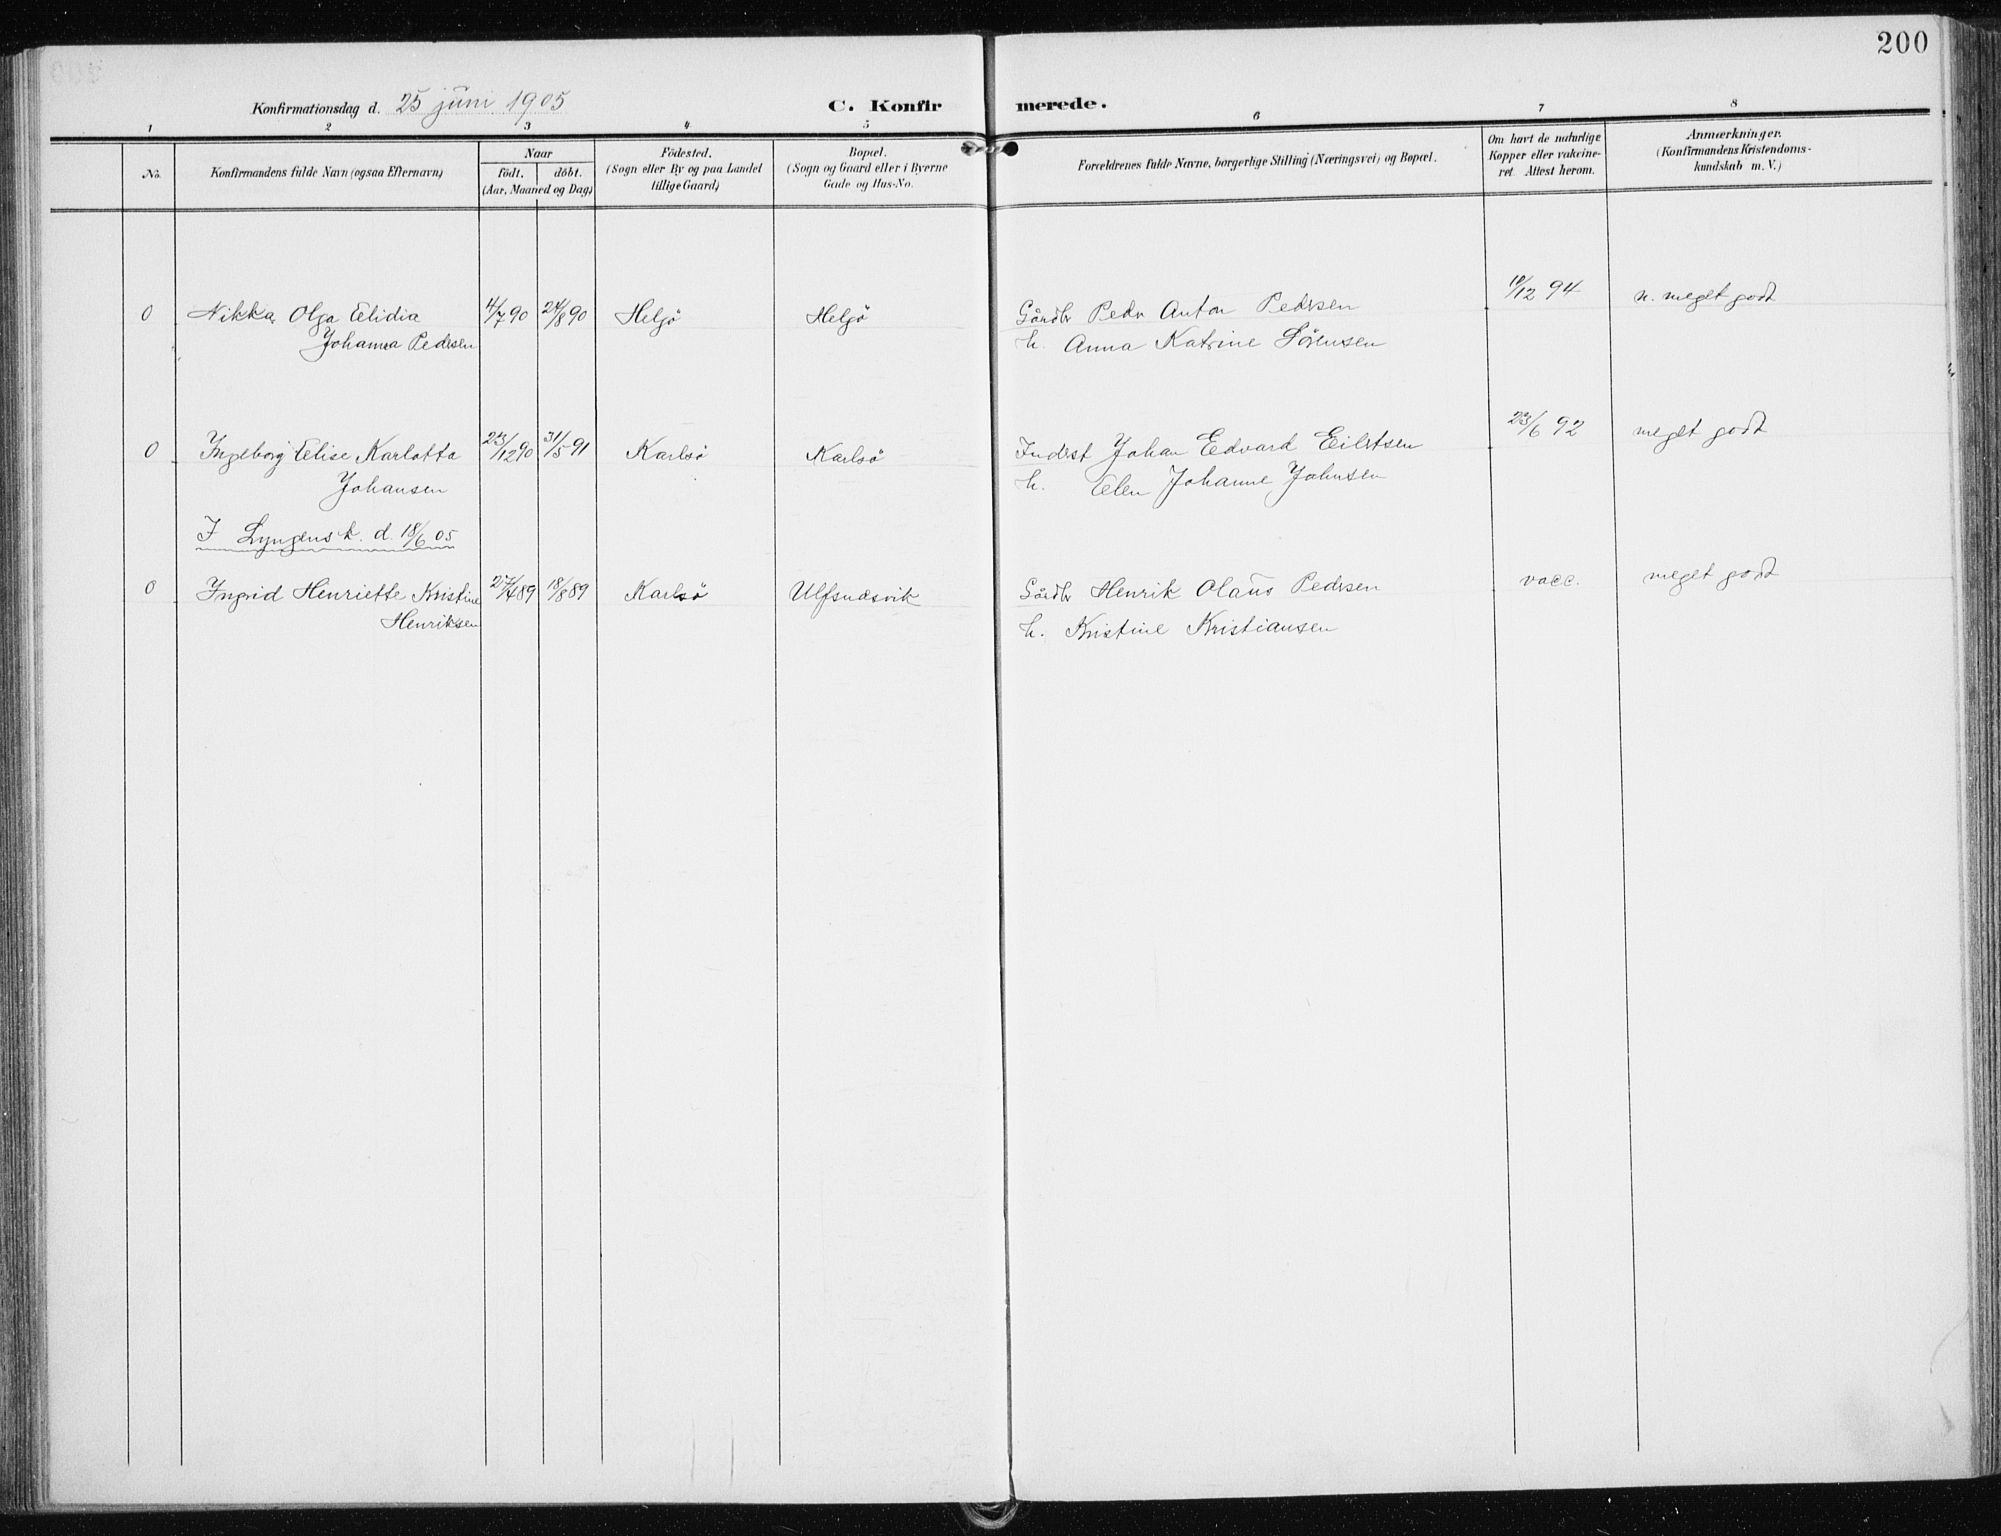 200
Konfirmationsdag d. 25 juni 1905
C. Konfir merede.
1 2 3 4 5 6 7 8
No.
Konfirmandens fulde Navn (ogsaa Efternavn)
Naar
födt. döbt.
(Aar, Maaned og Dag)
Födested.
(Sogn eller By og paa Landet
tillige Gaard)
Bopæl.
(Sogn og Gaard eller i Byerne
Gade og Hus-No.
Forældrenes fulde Navne, borgerlige Stilling (Næringsvei) og Bopæl.
Om havt de naturlige
Kopper eller vakcine-
ret. Attest herom.
Anmærkninger.
(Konfirmandens Kristendoms-
kundskab m. V.)
0 Nikka Olga Elidia 4/7 90 24/8 90 Helgö Helgö Gårdbr Peder Anton Pedersen 10/12 94 n. meget godt
Johanna Pedersen h. Anna Katrine Sörensen
0 Ingeborg Elise Karlotta 23/12 90 31/5 91 Karlsö Karlsö Inderst Johan Edvard Eilertsen 23/6 92 meget godt
Johansen h. Elen Johanne Johnsen
I Lyngens k. d. 18/6 05
0 Ingrid Henriette Kristine 27/4 89 18/8 89 Karlsö Ulfsnæsvik Gårdbr Henrik Olaus Pedersen vacc. meget godt
Henriksen h. Kristine Kristiansen